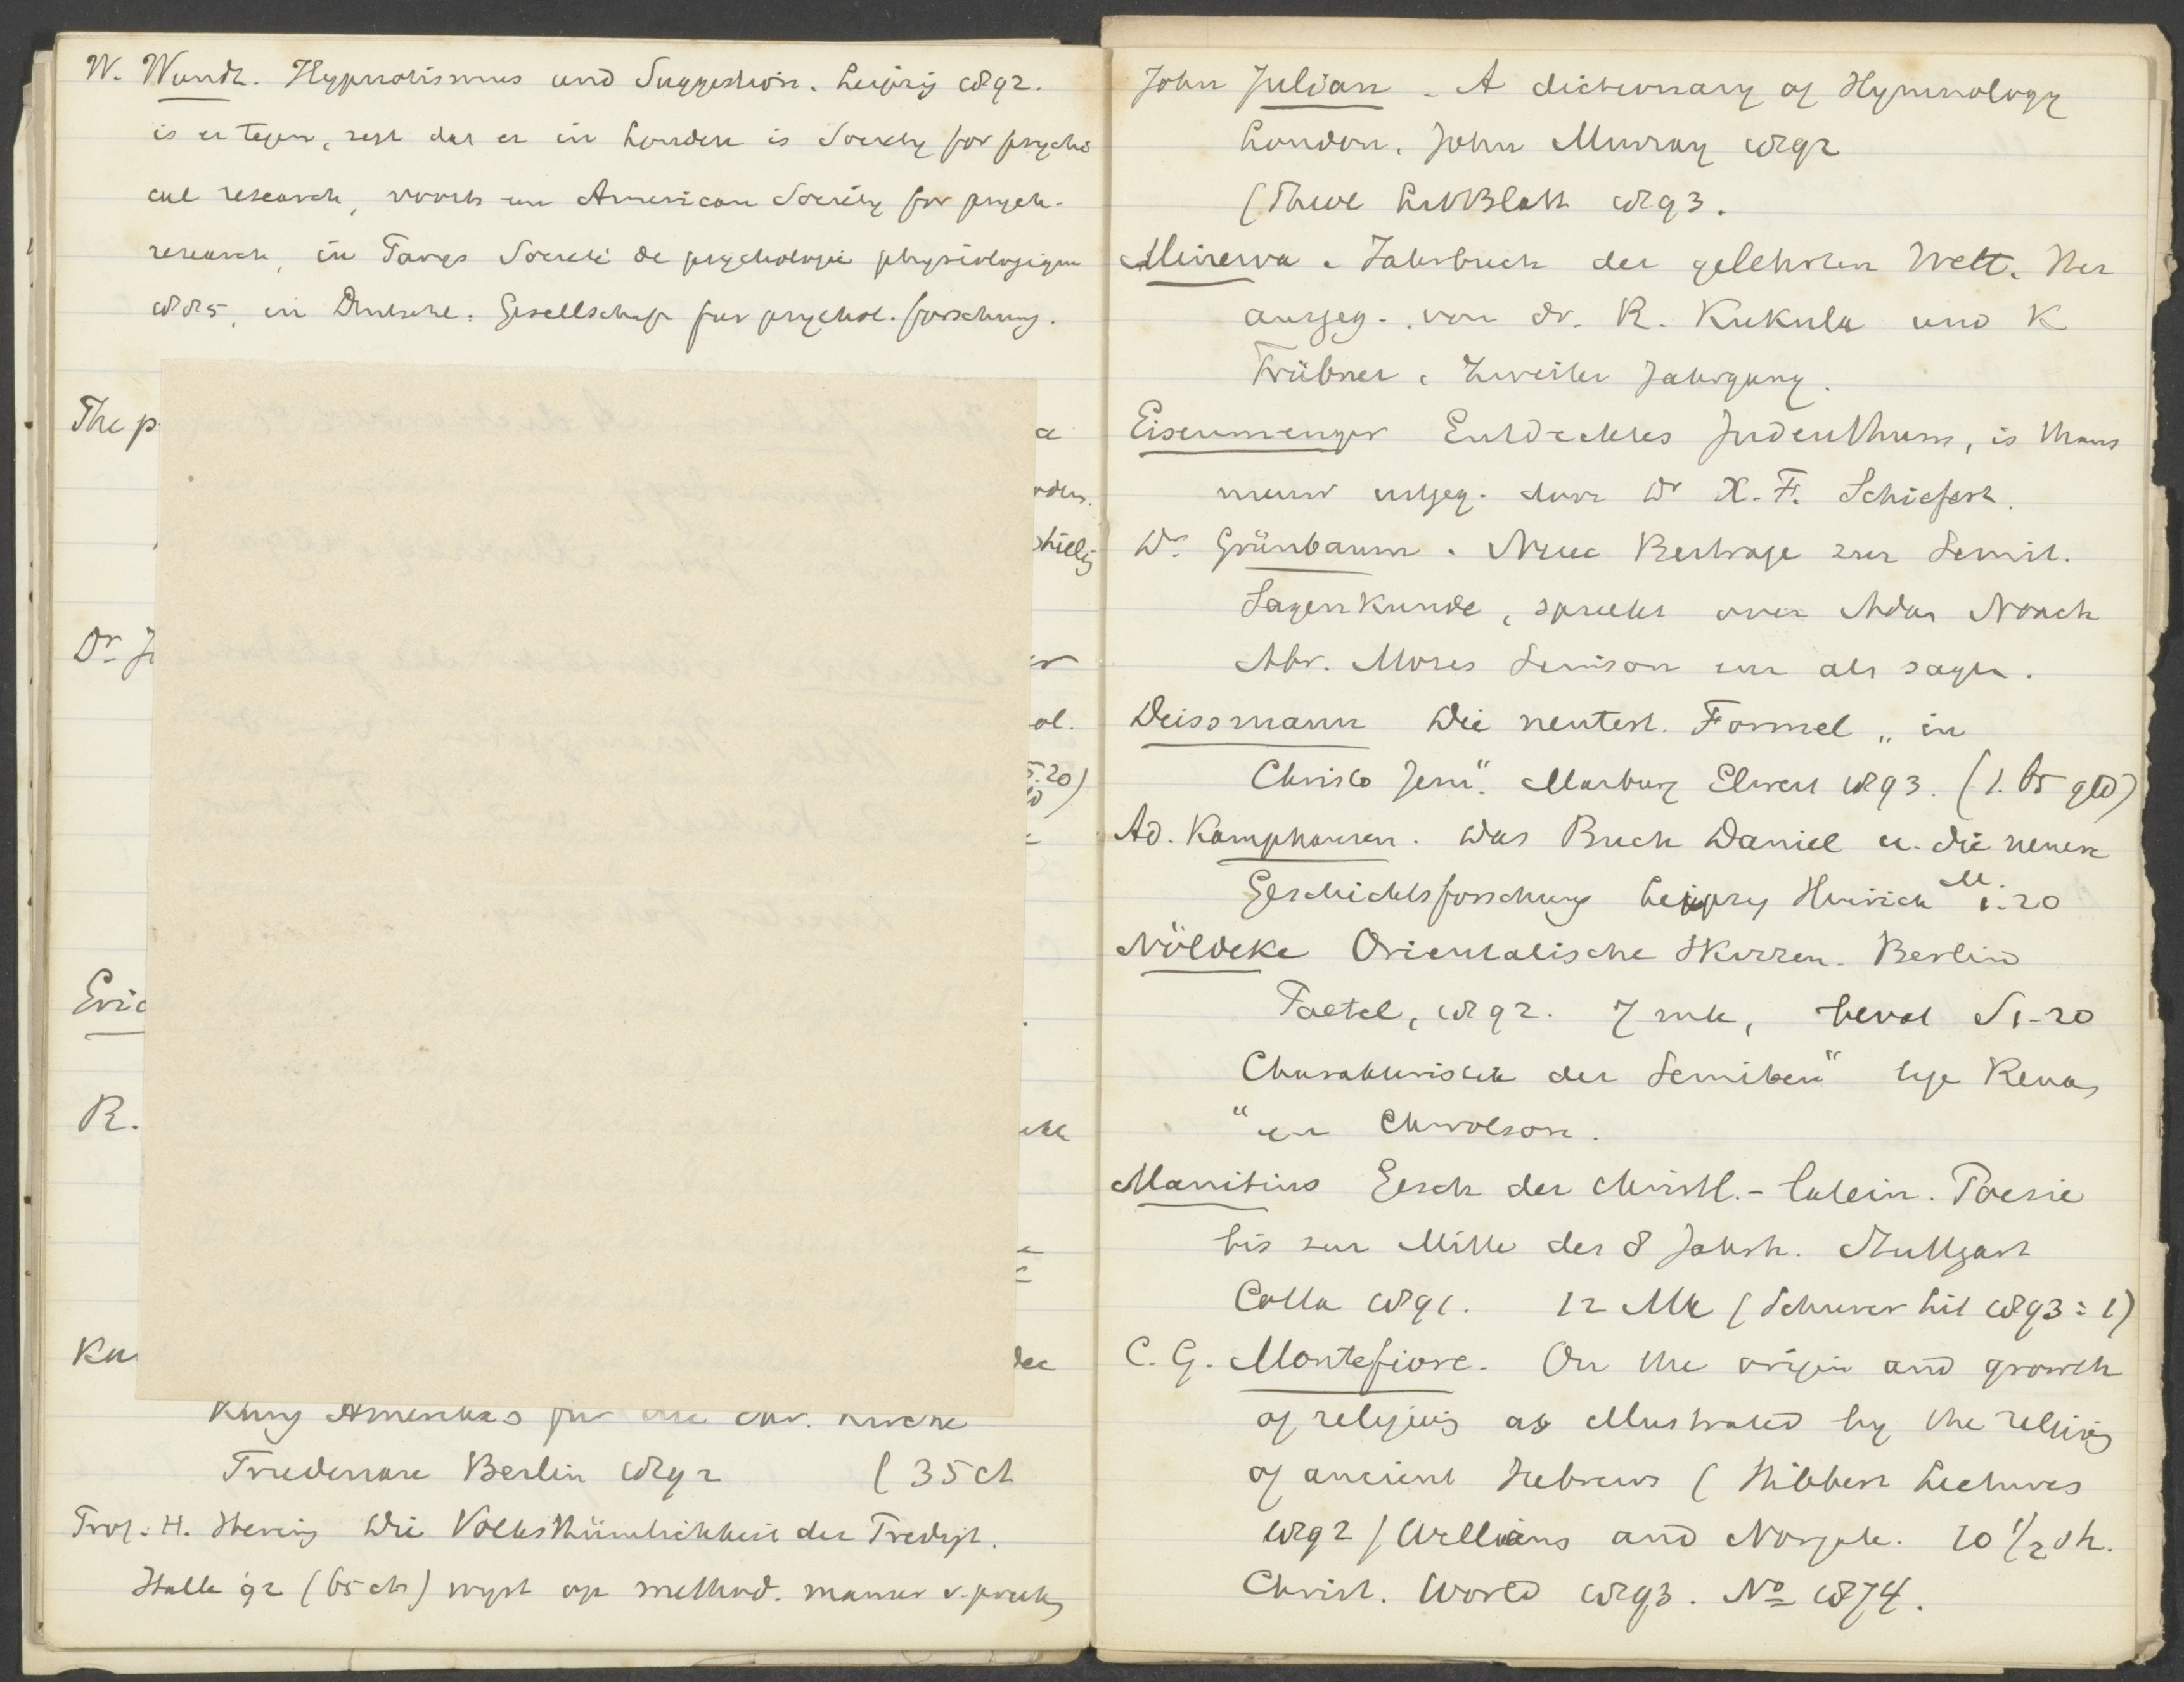 W. Wundt. Hypnotismus und Suggestion. Leipzig 1892.
is er tegen, zegt dat er in Londen is Society for psychi
cal research, voorts een American Society for psych.
research, in Parys Société de psychologie physiologique
1885, in Deutschl. Gesellschaft für psychol. forschung.
The p
a
Dr. J
er
ol.
5.20)
Eric
R.
Ku
dec
kung Amerikas für die chr. Kirche
Friedenau Berlin 1892 (35 ct
Prof. H. Hering Die Volksthümlichkeit der Predigt.
Halle 92 (65 cts) wyst op method. manier v. preek
John Julian - A dictionary of Hymnology
London, John Murray 1892
(Theol LittBlatt 1893.
Minerva. Jahrbuch der gelehrten Welt. Her
ausgeg. von dr. R. Kukula und K
Trübner. Zweiter Jahrgang.
Eisenmenger Entdecktes Judenthum, is thans
nieuw uitgeg. door Dr X. F. Schiefert.
Dr. Grünbaum. Neue Beitrage zur Semit.
Sagenkunde, spreekt over Adam Noach
Abr. Mozes Simson enz als sagen.
Deissmann Die neutest. Formel „in
Christo Jesu". Marburg Elwert 1893. (1.65 gld)
Ad. Kamphausen. Das Buch Daniel u. die neuere
Geschichtsforschung Leipzig Hinrich M 1.20
Nöldeke Orientalische Skizzen. Berlin
Paetel, 1892. 7 mk, bevat S 1-20
Charakteristik der Semiten" tegen Renan
"en Chwolson.
Manitius Gesch der christl.-latein. Poesie
bis zur Mitte des 8 Jahrh. Stuttgart
Cotta 1891. 12 Mk (Schurer Lit 1893: 1)
C. G. Montefiore. On the origin and growth
of religion as illustrated by the religion
of ancient Hebrews (Hibbert Lectures
1892) Williams and Norgate. 10 1/2 sh.
Christ. World 1893. No 1874.